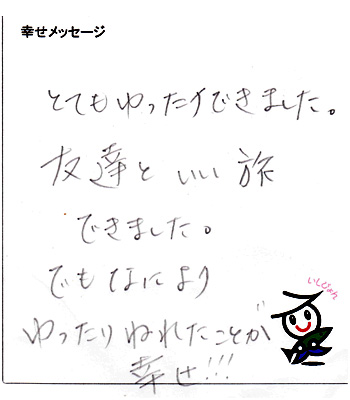 幸せメッセージ
とてもゆったりできました。
友達といい旅
できました。
でもなにより
ゆったりねれたことが
幸せ!!!